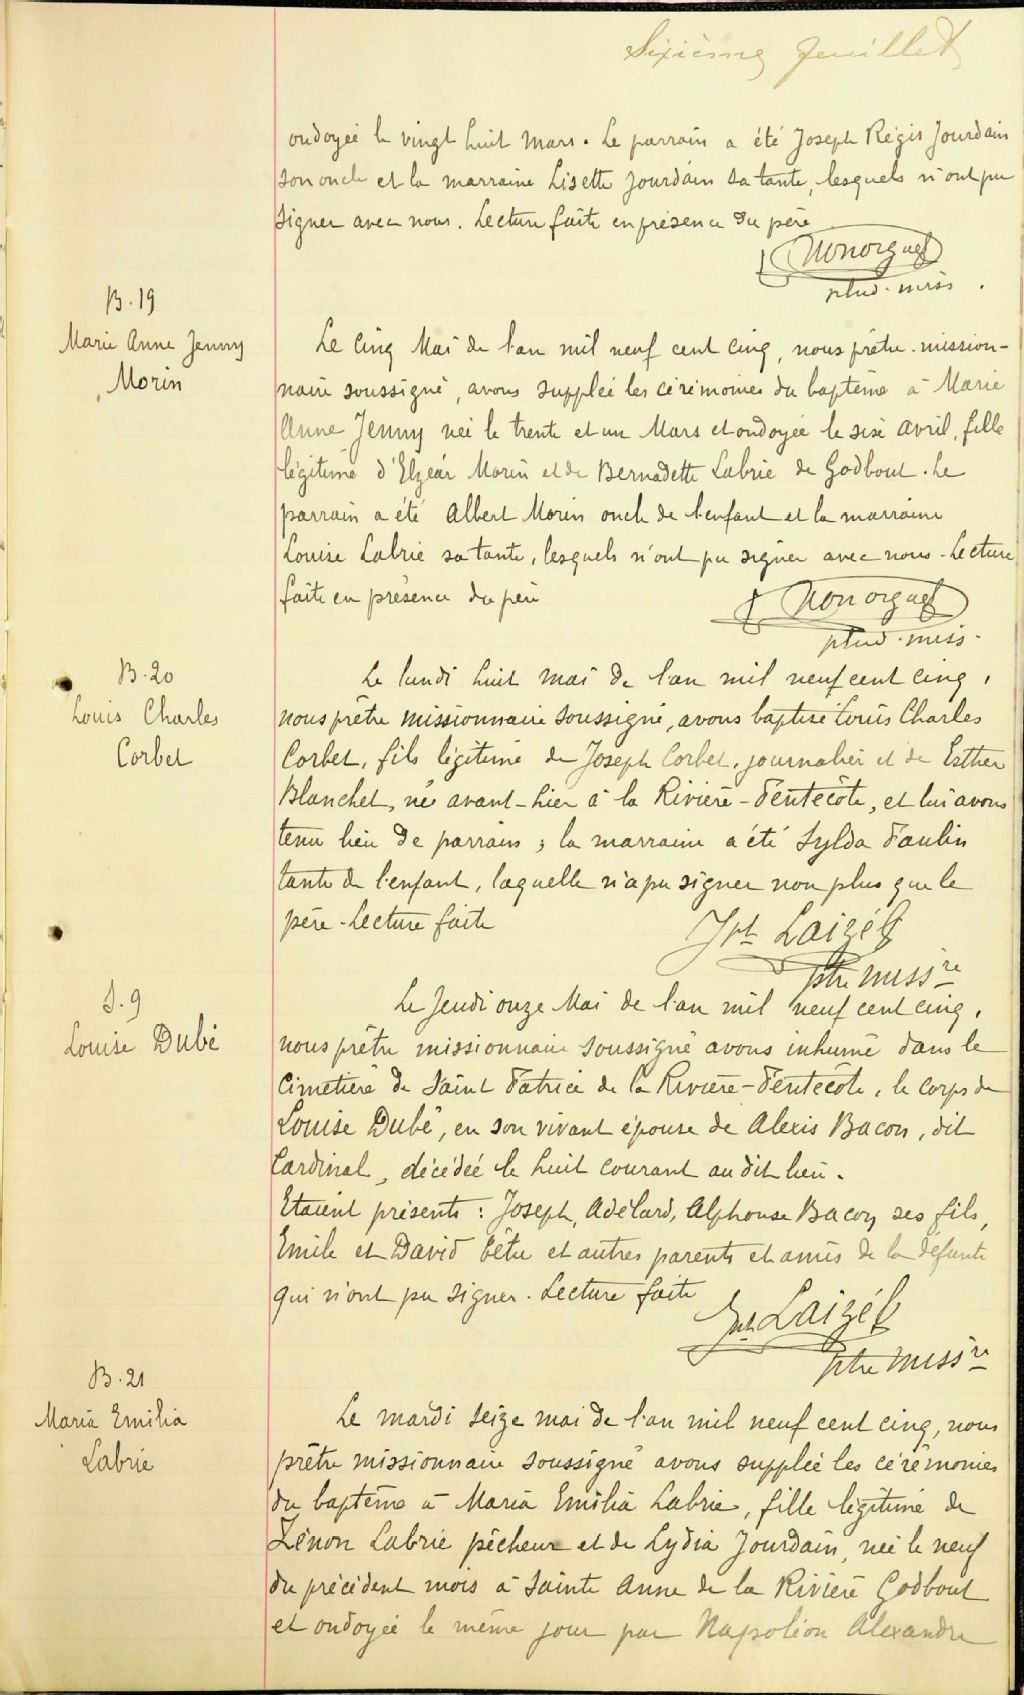 Sixième feuillet
ondoyée le vingt huit Mars. Le parrain a été Joseph Régis Jourdain
son oncle et la marraine Lisette Jourdain sa tante, lesquels n'ont pu
signer avec nous. Lecture faite en présence du père
ptre-miss.
B.19
Marie Anne Jenny
Morin
Le cinq Mai de l'an mil neuf cent cinq, nous prêtre-mission-
naire soussigné, avons suppléé les cérémonies du baptême à Marie
Anne Jenny née le trente et un Mars et ondoyée le six avril, fille
légitime d'Elzéar Morin et de Bernadette Labrie de Godbout. Le
parrain a été Albert Morin oncle de l'enfant et la marraine
Louise Labrie sa tante, lesquels n'ont pu signer avec nous - Lecture
faite en présence du père
ptre-miss.
B.20
Louis Charles
Corbet
Le lundi huit mai de l'an mil neuf cent cinq,
nous prêtre missionnaire soussigné, avons baptisé Louis Charles
Corbet, fils légitime de Joseph Corbet, journalier et de Esther
Blanchet, né avant-hier à la Rivière-Pentecôte, et lui avons
tenu lieu de parrain ; la marraine a été Sylda Paulin
tante de l'enfant, laquelle n'a pu signer non plus que le
père - Lecture faite
Jph Laizé
ptre miss re
S.9
Louise Dubé
Le Jeudi onze Mai de l'an mil neuf cent cinq,
nous prêtre missionnaire soussigné avons inhumé dans le
Cimetière de Saint Patrice de la Rivière-Pentecôte, le corps de
Louise Dubé, en son vivant épouse de Alexis Bacon, dit
Cardinal, décédée le huit courant au dit lieu.
Etaient présents : Joseph, Adélard, Alphonse Bacon ses fils,
Emile et David Têtu et autres parents et amis de la défunte
qui n'ont pu signer. Lecture faite
Jph Laizé
ptre miss re
B.21
Maria Emilia
Labrie
Le mardi seize mai de l'an mil neuf cent cinq, nous
prêtre missionnaire soussigné avons suppléé les cérémonies
du baptême à Maria Emilia Labrie, fille légitime de
Zénon Labrie pêcheur et de Lydia Jourdain, née le neuf
du précédent mois à Sainte Anne de la Rivière Godbout
et ondoyée le même jour par Napoléon Alexandre